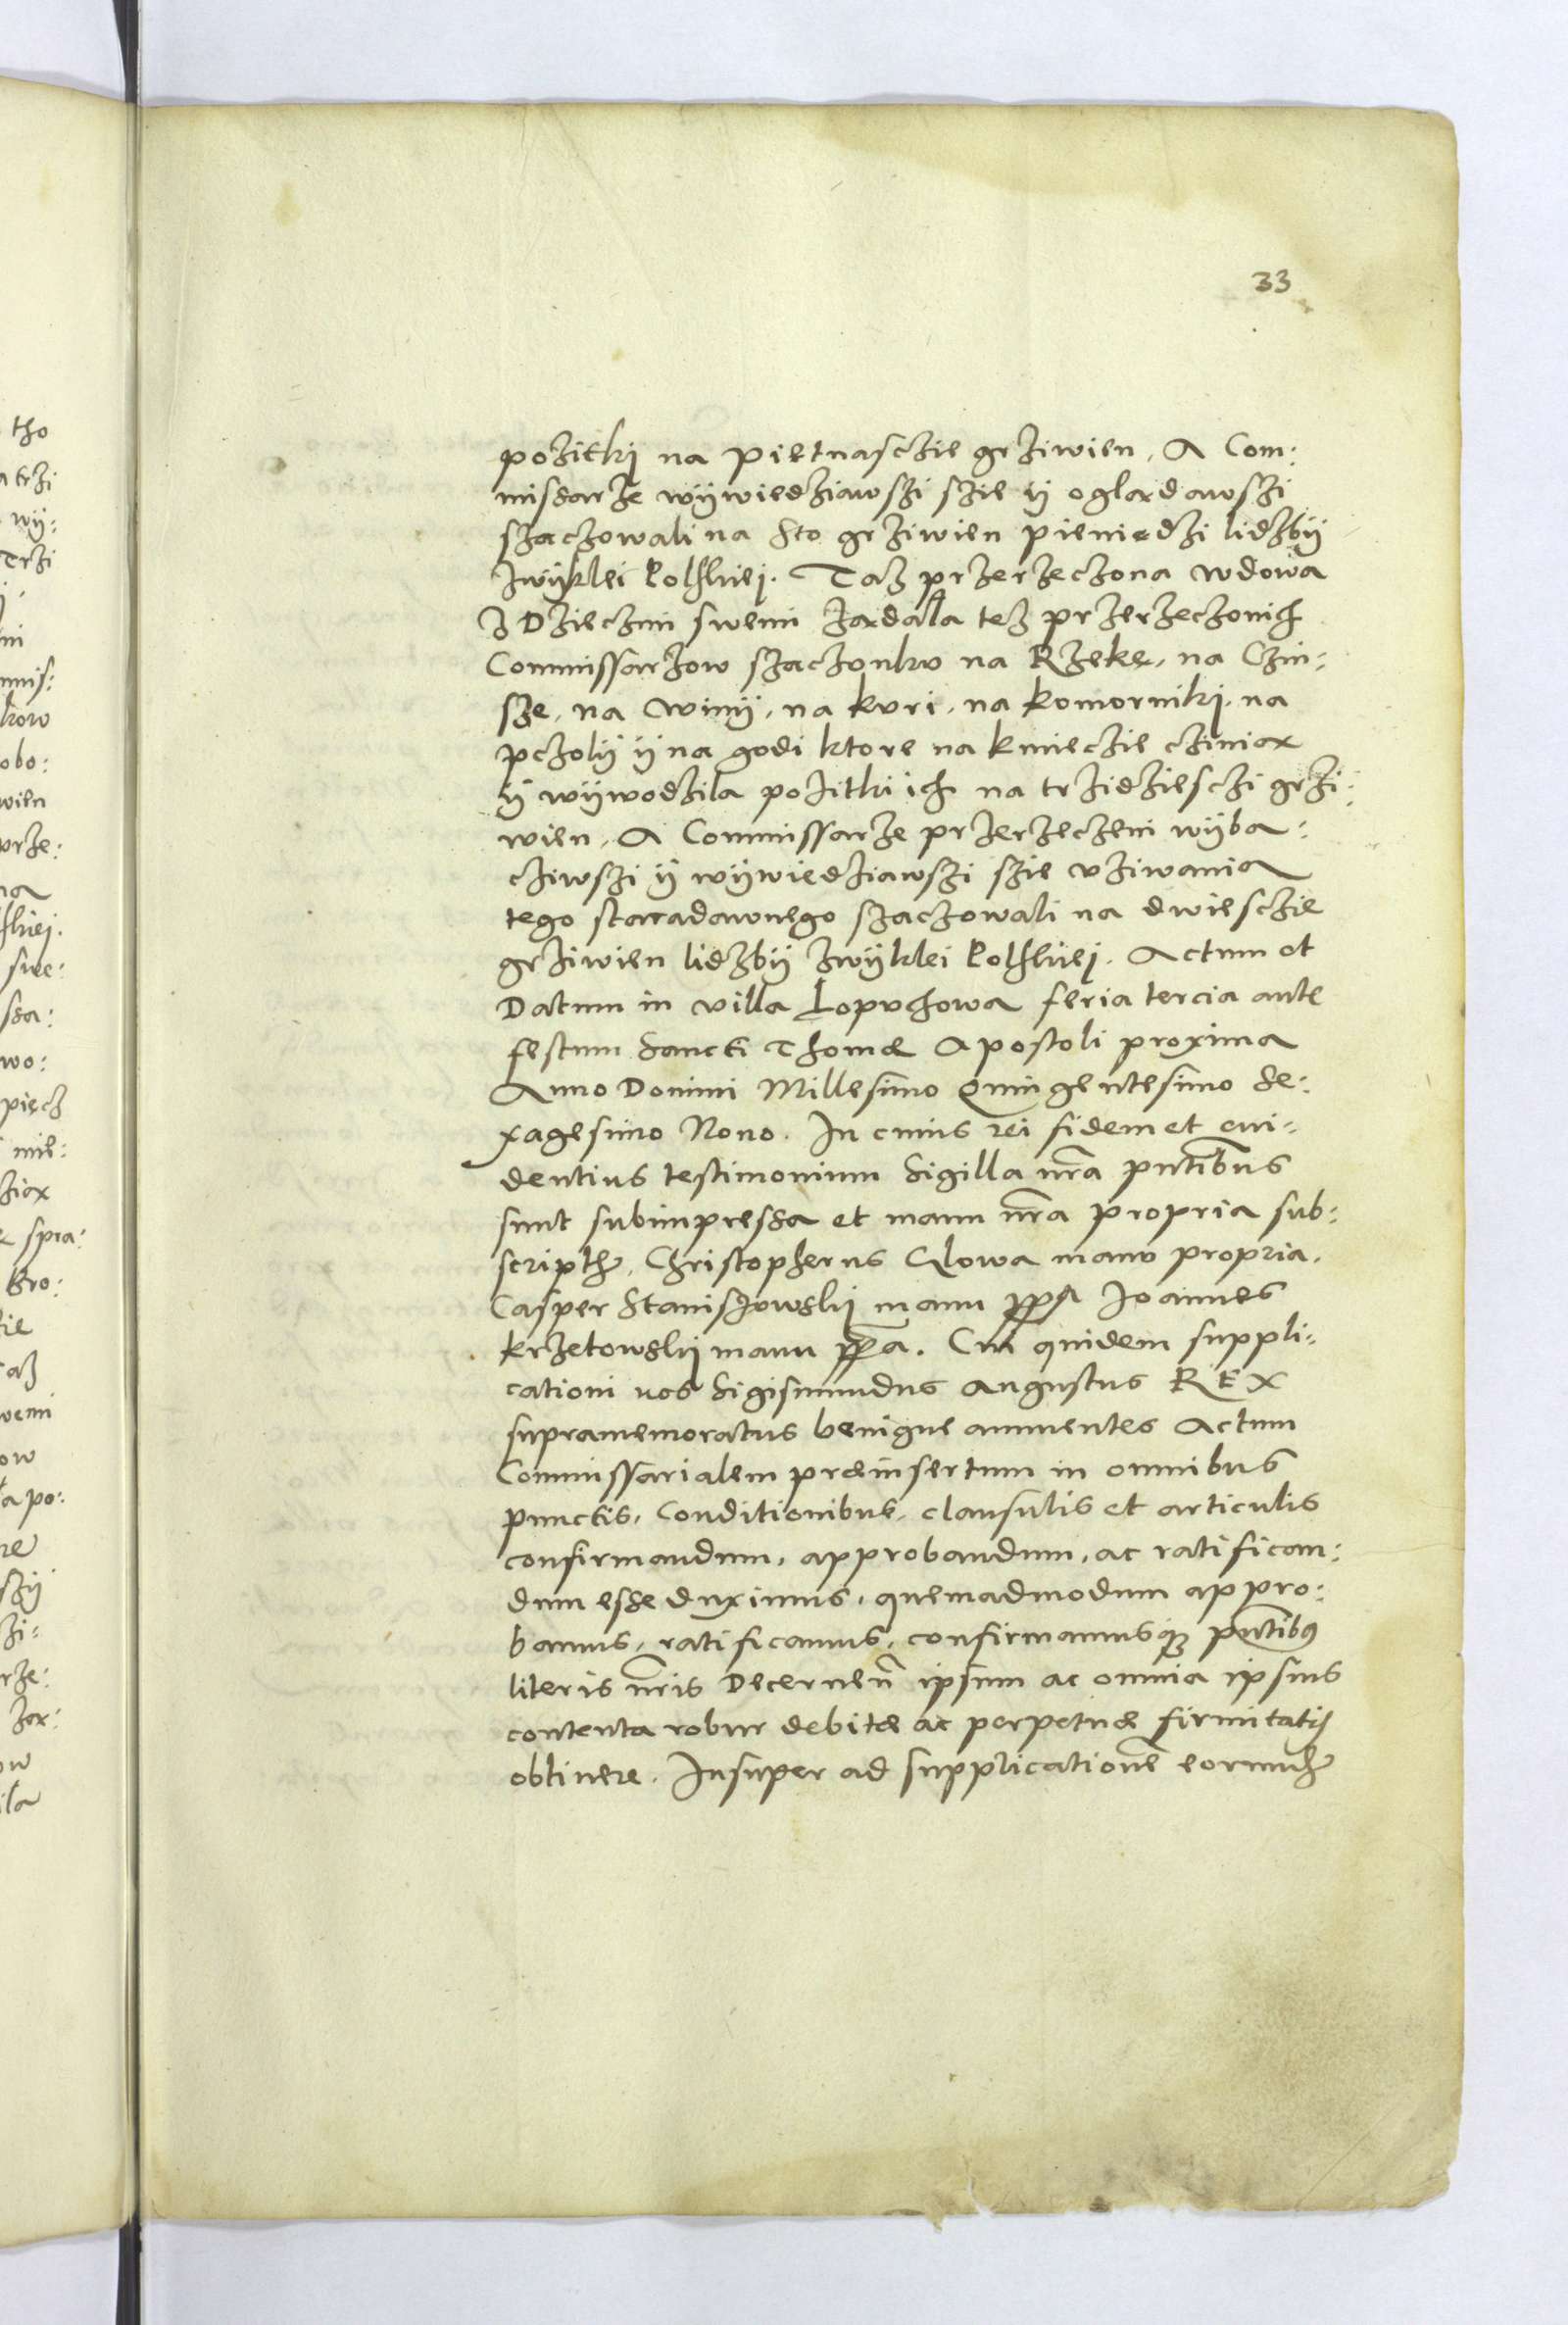 33
pożitkj na pietnasczie grziwien, A Com:
missarze wÿwiedziawszi szie ÿ oglαdawszi
szaczowali na sto grziwien pieniędzi lidzbÿ
zwÿklei Polskiej. Taż przerzeczona wdowa
z Dziećzmi swemi żαdała też przerzeczonich
Commissarzow szaczonku na Rzekę, na Czin:
sze, na winÿ, na kuri, na komornikj, na
pczolÿ ÿ na godi ktore na kmieczie cziniα
ÿ wÿwodzila pożitki ich na trzidziesczi grzi:
wien, A Commissarze przerzeczeni wÿba:
cziwszi ÿ wÿwiedziawszi szie użiwania
tego staradawnego szaczowali na dwiesczie
grziwien lidzbÿ zwÿklei Polskiej. Actum et
Datum in villa Lopuchowa feria tercia ante
festum Sancti Thomæ Apostoli proxima
Anno Domini Millesimo Quingentesimo Se:
xagesimo Nono. In cuius rei fidem et eui:
dentius testimonium Sigilla nr̃a pñtibus
sunt subimpressa et manu nr̃a propria sub:
script. Christopherus Glowa manu propria.
Casper Staniszowskj manu ppa Joannes
krzetowskj manu ppa. Cui quidem suppli:
cationi nos Sigismundus Augustus REX
supramemoratus benigne annuentes Actum
Commissarialem præinsertum in omnibus
punctis, Conditionibus, clausulis et articulis
confirmandum, approbandum, ac ratifican:
dum esse duximus, quemadmodum appro:
bamus, ratificamus, confirmamusq3 pñtibus
literis nr̃is Decerneñ ipsum ac omnia ipsius
contenta robur debitæ ac perpetuæ firmitatis
obtinere. Insuper ad supplicationẽ eorund